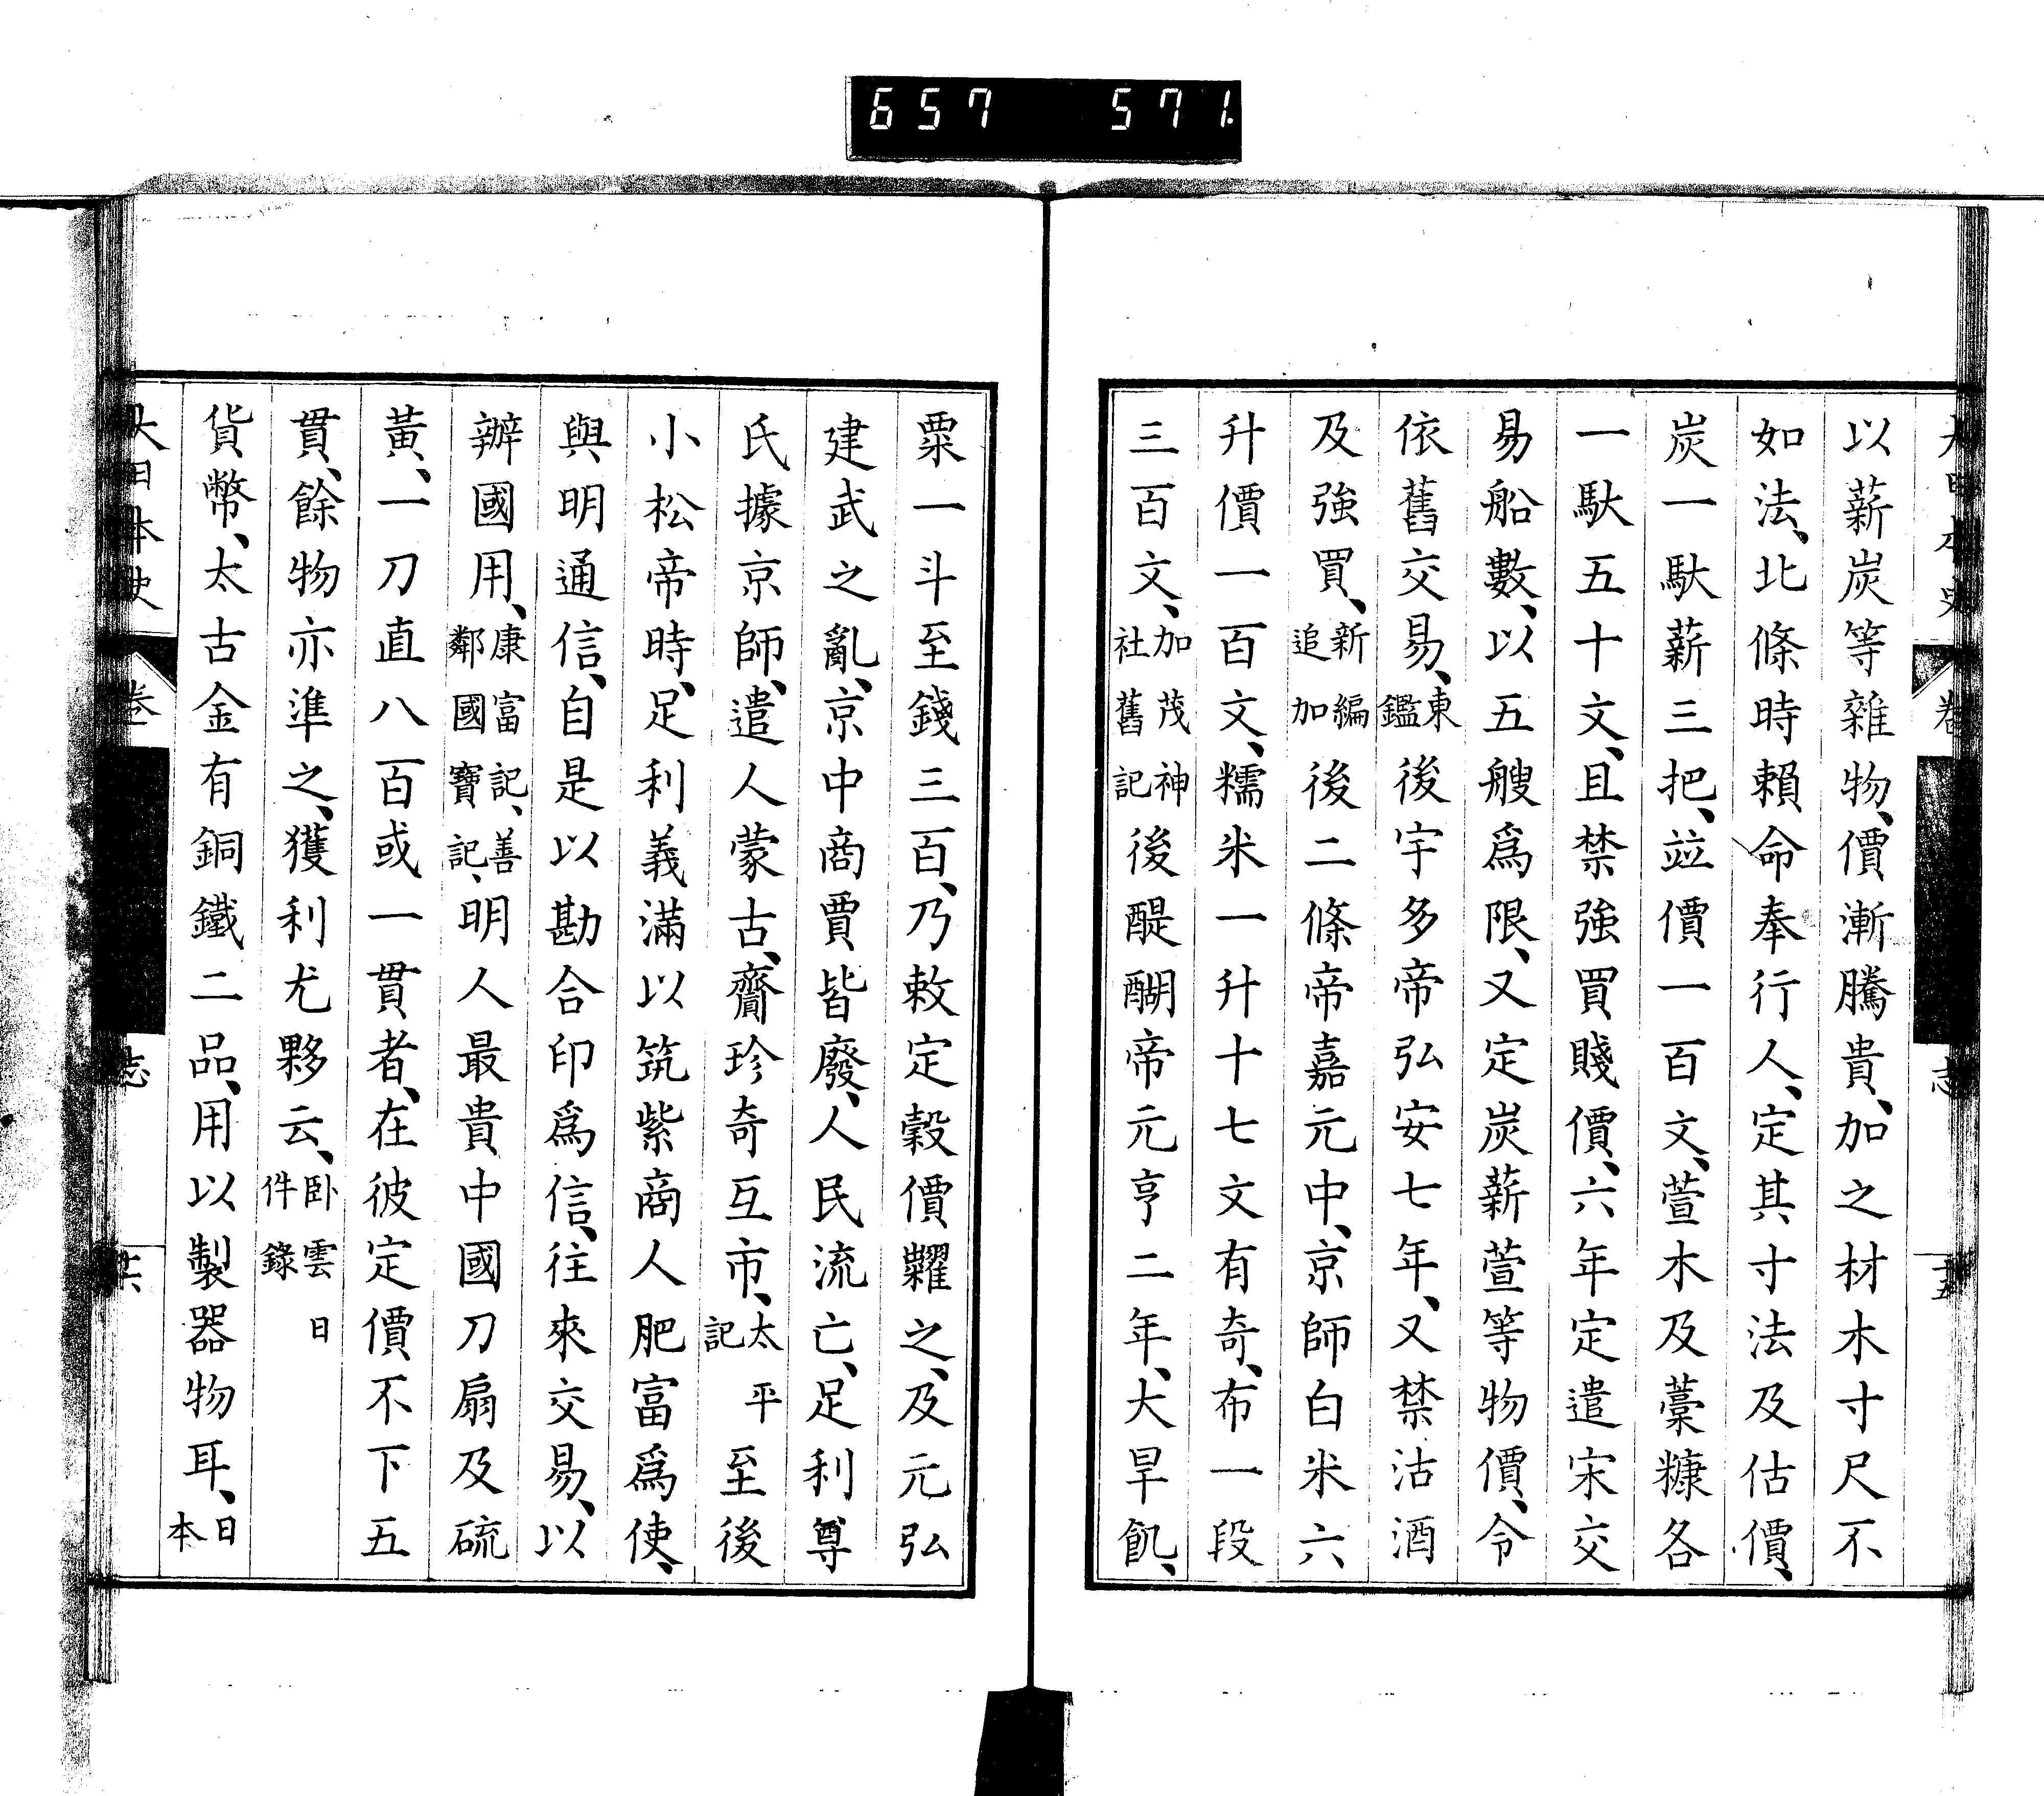 657 571.
大日本史 卷 志 十五
以薪炭等雜物、價漸騰貴、加之材木寸尺不
如法、北條時賴命奉行人、定其寸法及估價、
炭一馱薪三把、竝價一百文、萱木及藁糠各
一馱五十文、且禁強買賤價、六年定遣宋交
易船數、以五艘爲限、又定炭薪萱等物價、令
依舊交易、東鑑後宇多帝弘安七年、又禁沽酒
及強買、新編追加後二條帝嘉元中、京師白米六
升價一百文、糯米一升十七文有奇、布一段
三百文、加茂神社舊記後醍醐帝元亨二年、大旱飢、
粟一斗至錢三百、乃敕定穀價糶之、及元弘
建武之亂、京中商賈皆廢、人民流亡、足利尊
氏據京師、遣人蒙古、齎珍奇互市、太平記至後
小松帝時、足利義滿以筑紫商人肥富爲使、
與明通信、自是以勘合印爲信、往來交易、以
辦國用、康富記、善鄰國寶記、明人最貴中國刀扇及硫
黃、一刀直八百或一貫者、在彼定價不下五
貫、餘物亦準之、獲利尤夥云、臥雲日件錄
貨幣、太古金有銅鐵二品、用以製器物耳、日本
大日本史 卷 志 十六